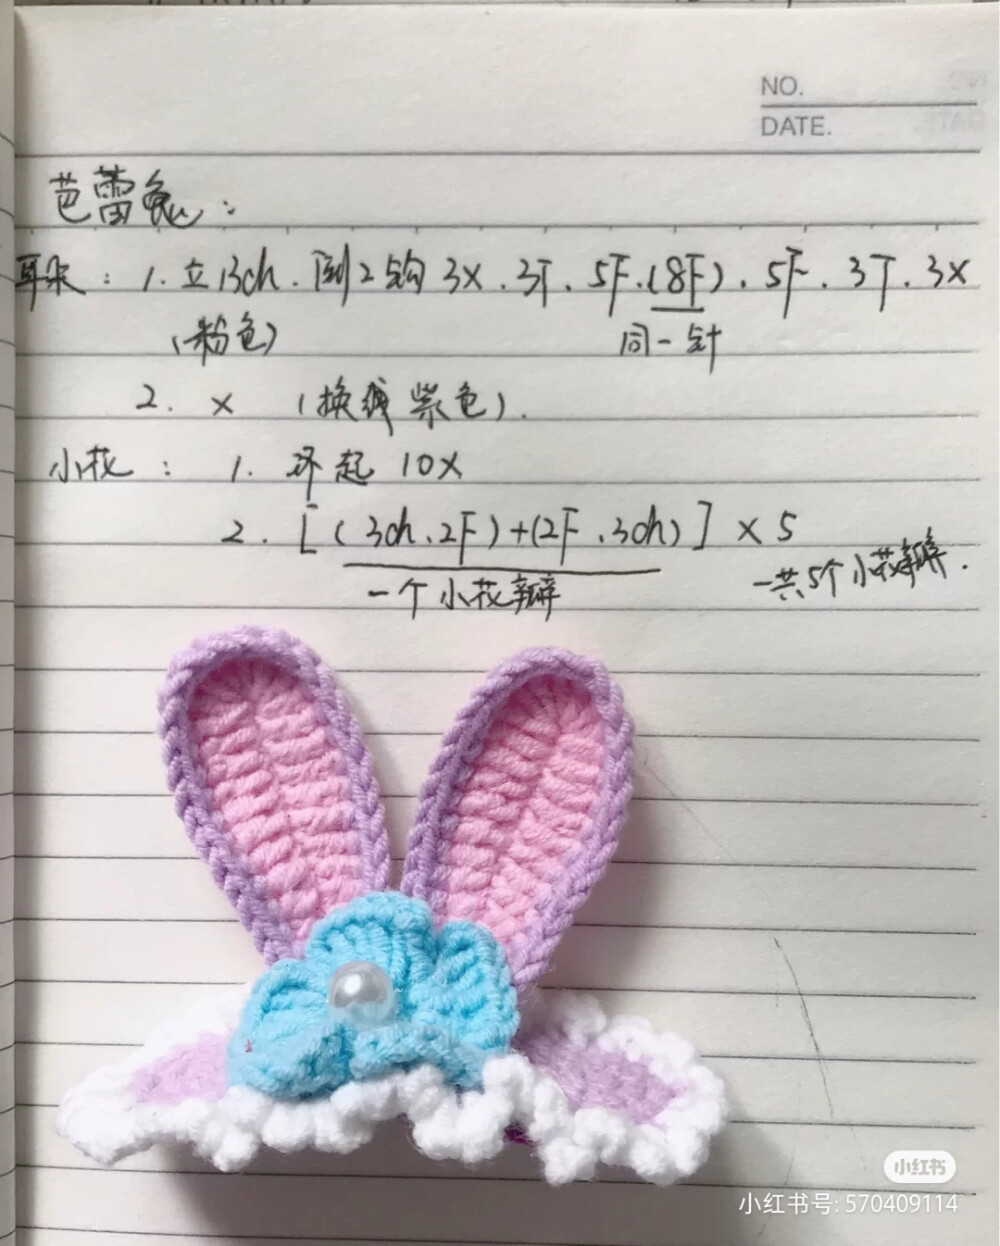 NO.
DATE.
芭蕾兔：
耳朵：1. 立13ch. 倒2钩 3X. 3T. 5F. (8F). 5F. 3T. 3X
(粉色) 同一针
2. X (换线 紫色).
小花：1. 环起 10X
2. [(3ch.2F)+(2F.3ch)] X 5
一个小花瓣 一共5个小花瓣.
小红书
小红书号: 570409114